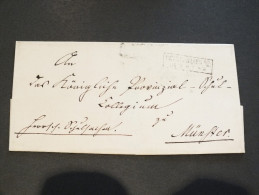 An
das Königliche Provinzial-Schul-
Collegium
zu
Münster.
Herrsch. Schulsache.